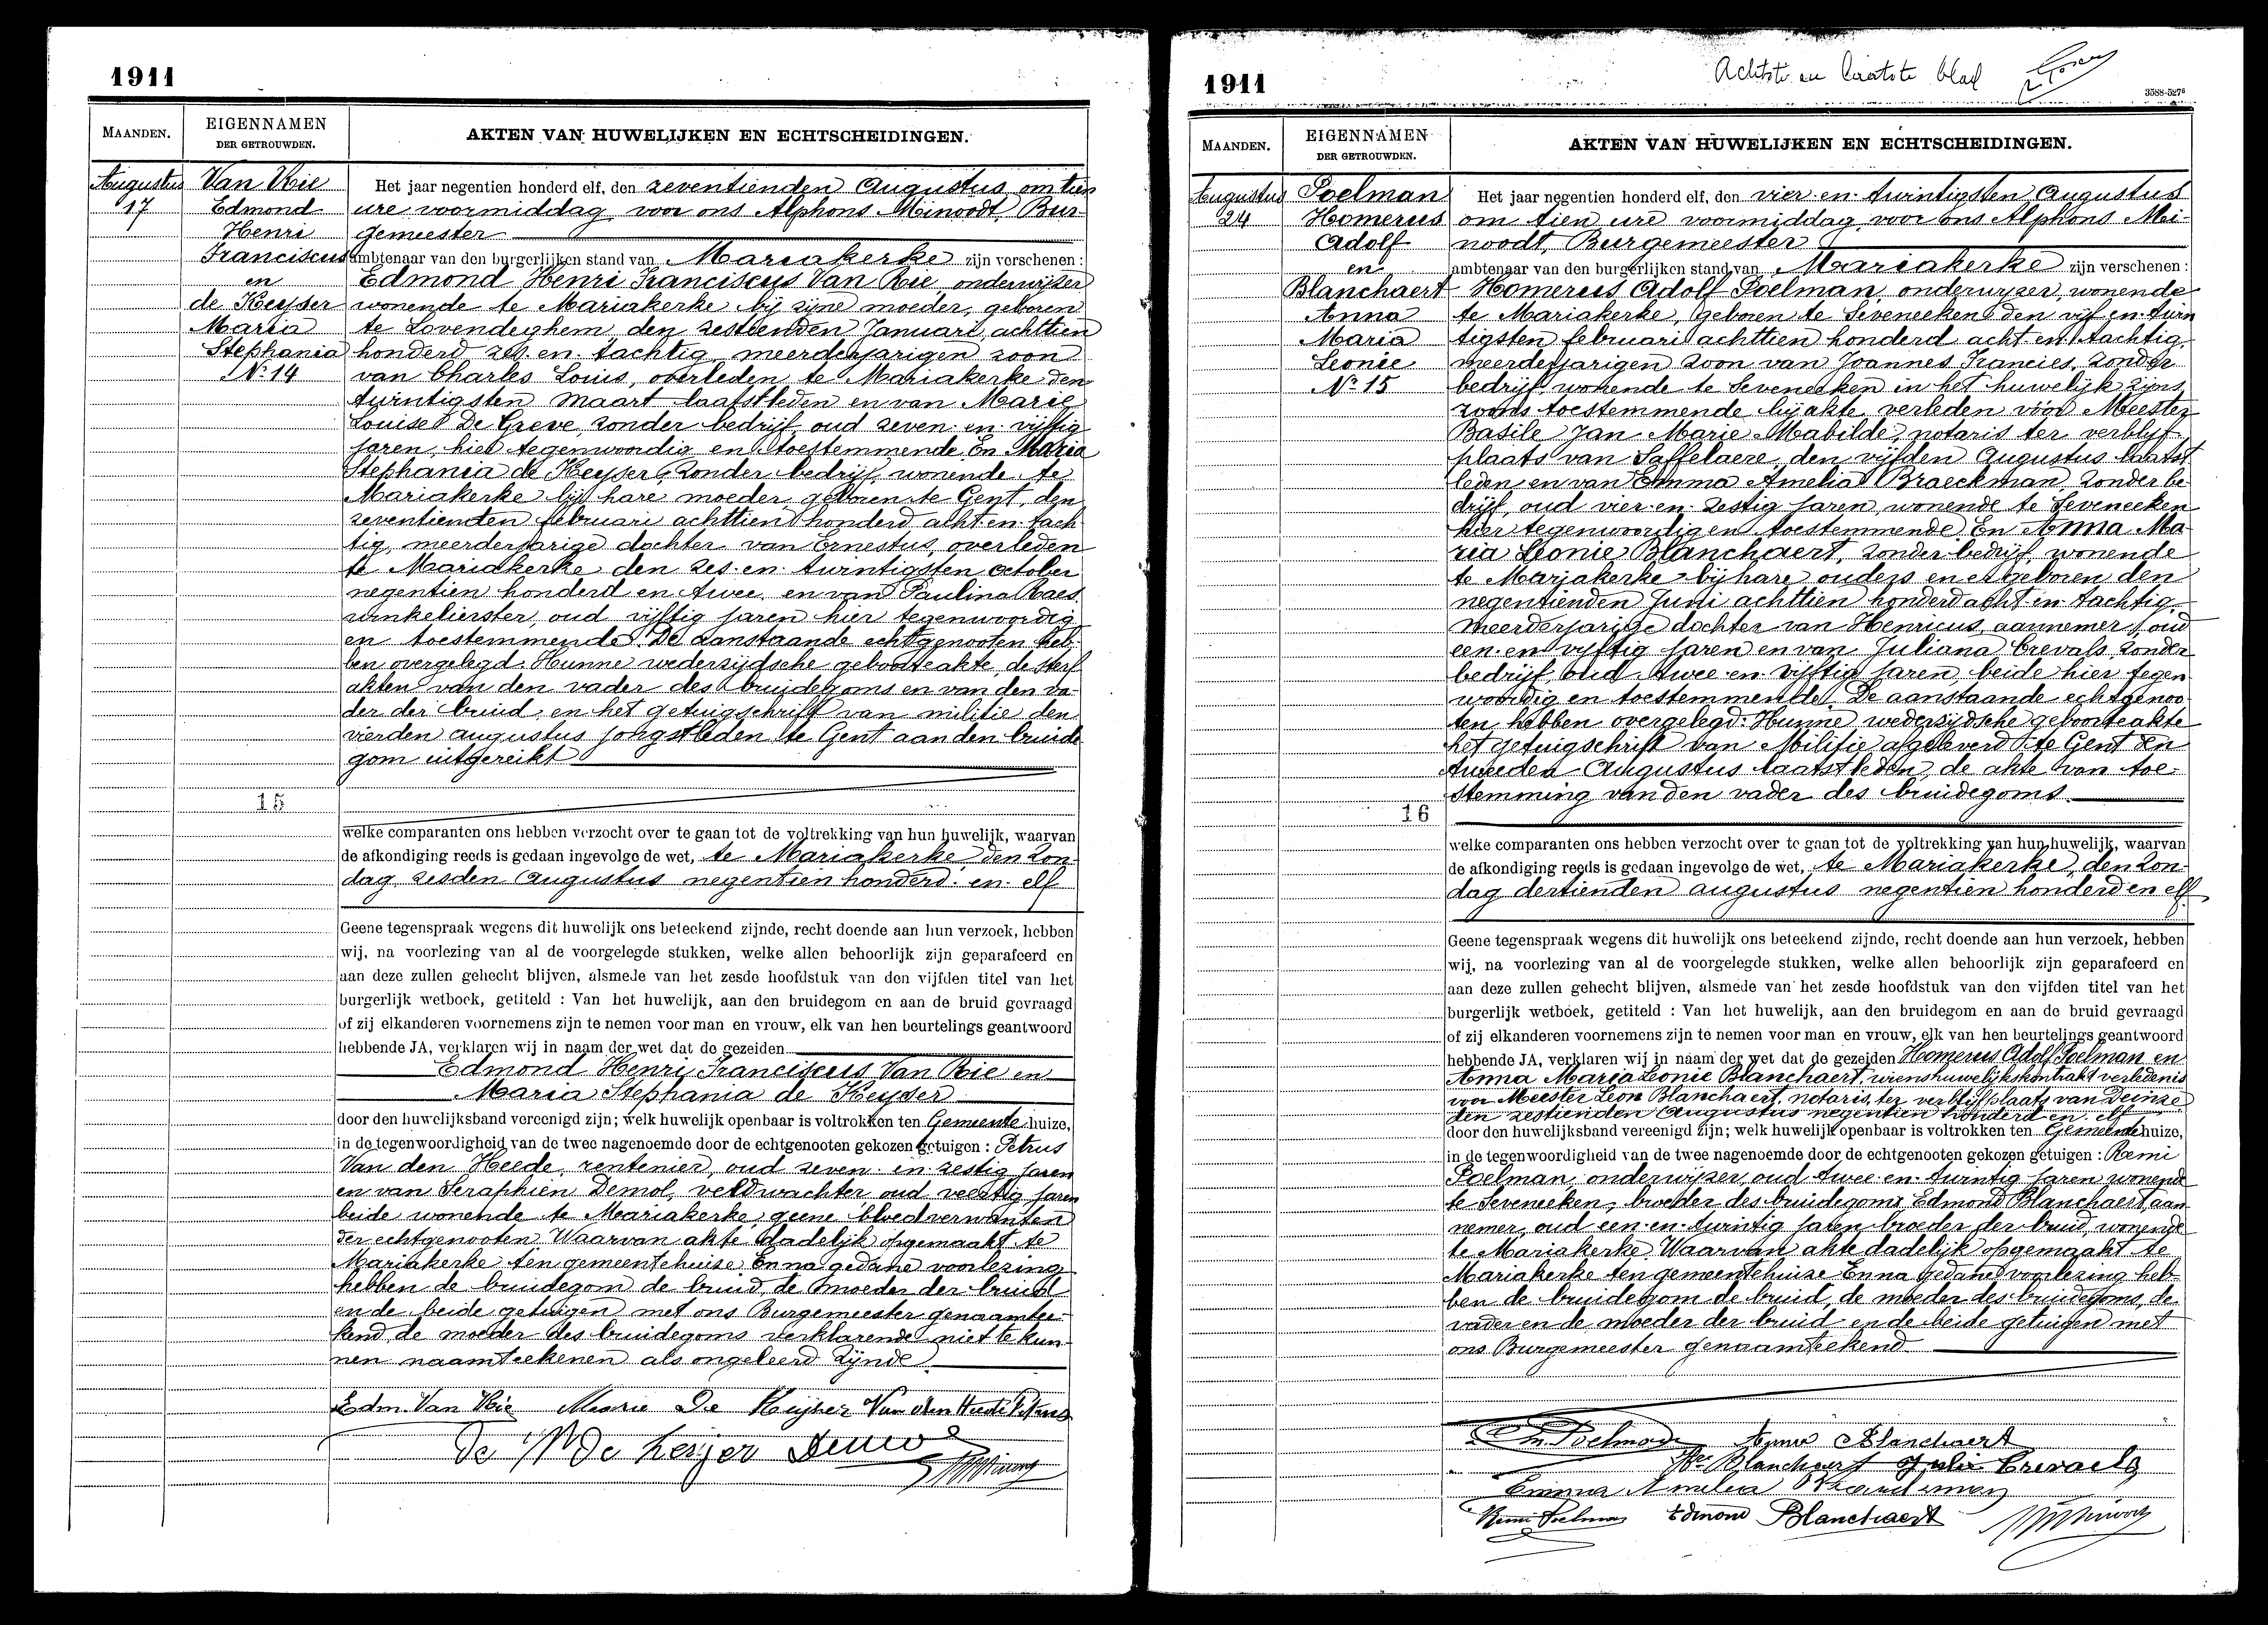 1911
MAANDEN.
EIGENNAMEN
DER GETROUWDEN.
AKTEN VAN HUWELIJKEN EN ECHTSCHEIDINGEN.
Augustus
17
Van Rie
Edmond
Henri
Franciscus
en
de Keyser
Maria
Stephania
No 14
Het jaar negentien honderd elf, den zeventienden Augustus, om tien
ure voormiddag, voor ons Alphons Minoodt, Bur-
gemeester
ambtenaar van den burgerlijken stand van Mariakerke zijn verschenen :
Edmond Henri Franciscus Van Rie, onderwijzer
wonende te Mariakerke bij zijne moeder, geboren
te Lovendeghem, den zestienden Januari, achttien
honderd zes en tachtig, meerderjarigen zoon
van Charles Louis, overleden te Mariakerke den
twintigsten maart laatstleden en van Marie
Louise De Greve, zonder bedrijf, oud zeven en vijftig
jaren, hier tegenwoordig en toestemmende. En Maria
Stephania de Keyser, zonder bedrijf, wonende te
Mariakerke bij hare moeder, geboren te Gent, den
zeventienden februari achttien honderd acht en tach
tig, meerderjarige dochter van Ernestus, overleden
te Mariakerke den zes en twintigsten october
negentien honderd en twee, en van Paulina Raes
winkelierster, oud vijftig jaren hier tegenwoordig
en toestemmende. De aanstaande echtgenooten heb-
ben overgelegd: Hunne wederzijdsche geboorteakte, de sterf
akten van den vader des bruidegoms en van den va-
der der bruid, en het getuigschrift van militie den
vierden augustus jongstleden te Gent aan den bruide
gom uitgereikt
15
welke comparanten ons hebben verzocht over te gaan tot de voltrekking van hun huwelijk, waarvan
de afkondiging reeds is gedaan ingevolge de wet, te Mariakerke den Zon-
dag, zesden Augustus negentien honderd en elf
Geene tegenspraak wegens dit huwelijk ons beteekend zijnde, recht doende aan hun verzoek, hebben
wij, na voorlezing van al de voorgelegde stukken, welke allen behoorlijk zijn geparafeerd en
aan deze zullen gehecht blijven, alsmede van het zesde hoofdstuk van den vijfden titel van het
burgerlijk wetboek, getiteld : Van het huwelijk, aan den bruidegom en aan de bruid gevraagd
of zij elkanderen voornemens zijn te nemen voor man en vrouw, elk van hen beurtelings geantwoord
hebbende JA, verklaren wij in naam der wet dat de gezeiden
Edmond Henri Franciscus Van Rie en
Maria Stephania de Keyser
door den huwelijksband vereenigd zijn; welk huwelijk openbaar is voltrokken ten Gemeentehuize,
in de tegenwoordigheid van de twee nagenoemde door de echtgenooten gekozen getuigen : Petrus
Van den Heede, rentenier, oud zeven en zestig jaren
en van Seraphien Demol, veldwachter oud veertig jaren
beide wonende te Mariakerke, geene bloedverwanten
der echtgenooten. Waarvan akte dadelijk opgemaakt te
Mariakerke ten gemeentehuise. En na gedane voorlezing
hebben de bruidegom de bruid, de moeder der bruid
en de beide getuigen met ons Burgemeester genaamtee-
kend, de moeder des bruidegoms verklarende niet te kun-
nen naamteekenen als ongeleerd zijnde
Edm. Van Rie Marie De Keijser Van den Heede Petrus
de Wde Keijer Demol
1911
Achtste en laatste blad
3588-527
MAANDEN.
EIGENNAMEN
DER GETROUWDEN.
AKTEN VAN HUWELIJKEN EN ECHTSCHEIDINGEN.
Augustus
24
Poelman
Homerus
Adolf
en
Blanchaert
Anna
Maria
Leonie
No 15
Het jaar negentien honderd elf, den vier en twintigsten Augustus
om tien ure voormiddag, voor ons Alphons Mi-
noodt, Burgemeester
ambtenaar van den burgerlijken stand van Mariakerke zijn verschenen :
Homerus Adolf Poelman, onderwijzer, wonende
te Mariakerke, geboren te Seveneeken den vijf en twin
tigsten februari achttien honderd acht en tachtig,
meerderjarigen zoon van Joannes Francies, zonder
bedrijf, wonende te Seveneeken in het huwelijk zijns
zoons toestemmende bij akte verleden vóór Meester
Basile Jan Marie Mabilde, notaris ter verblijf-
plaats van Saffelaere, den vijfden Augustus laatst
leden en van Emma Amelia Braeckman, zonder be-
drijf, oud vier en zestig jaren, wonende te Seveneeken
hier tegenwoordig en toestemmende. En Anna Ma-
ria Leonie Blanchaert, zonder bedrijf, wonende
te Mariakerke bij hare ouders en er geboren den
negentienden Juni achttien honderd acht en tachtig,
meerderjarige dochter van Henricus, aannemer, oud
een en vijftig jaren en van Juliana Crevals, zonder
bedrijf oud twee en vijftig jaren, beide hier tegen
woordig en toestemmende. De aanstaande echtgenoo
ten hebben overgelegd: Hunne wederzijdsche geboorteakte
het getuigschrift van Militie afgeleverd te Gent den
tweeden Augustus laatstleden, de akte van toe-
stemming van den vader des bruidegoms.
16
welke comparanten ons hebben verzocht over te gaan tot de voltrekking van hun huwelijk, waarvan
de afkondiging reeds is gedaan ingevolge de wet, te Mariakerke, den Zon-
dag dertienden augustus negentien honderd en elf
Geene tegenspraak wegens dit huwelijk ons beteekend zijnde, recht doende aan hun verzoek, hebben
wij, na voorlezing van al de voorgelegde stukken, welke allen behoorlijk zijn geparafeerd en
aan deze zullen gehecht blijven, alsmede van het zesde hoofdstuk van den vijfden titel van het
burgerlijk wetboek, getiteld : Van het huwelijk, aan den bruidegom en aan de bruid gevraagd
of zij elkanderen voornemens zijn te nemen voor man en vrouw, elk van hen beurtelings geantwoord
hebbende JA, verklaren wij in naam der wet dat de gezeiden Homerus Adolf Poelman en
Anna Maria Leonie Blanchaert, wiens huwelijkskontrakt verleden is
voor Meester Leon Blanchaert, notaris, ter verblijfplaats van Deinze
den zestienden Augustus negentien honderd en elf
door den huwelijksband vereenigd zijn; welk huwelijk openbaar is voltrokken ten Gemeentehuize,
in de tegenwoordigheid van de twee nagenoemde door de echtgenooten gekozen getuigen : Remi
Poelman, onderwijzer, oud twee en twintig jaren wonende
te Seveneeken, broeder des bruidegoms Edmond Blanchaert, aan
nemer, oud een en twintig jaren broeder der bruid, wonende
te Mariakerke. Waarvan akte dadelijk opgemaakt te
Mariakerke ten gemeentehuise. En na gedane voorlezing heb-
ben de bruidegom de bruid, de moeder des bruidegoms, de
vader en de moeder der bruid en de beide getuigen met
ons Burgemeester genaamteekend
Poelman Anna Blanchaert
Blanchaert Julie Crevaels
Emma Amelia Braeckman
Remi Poelman Edmond Blanchaert